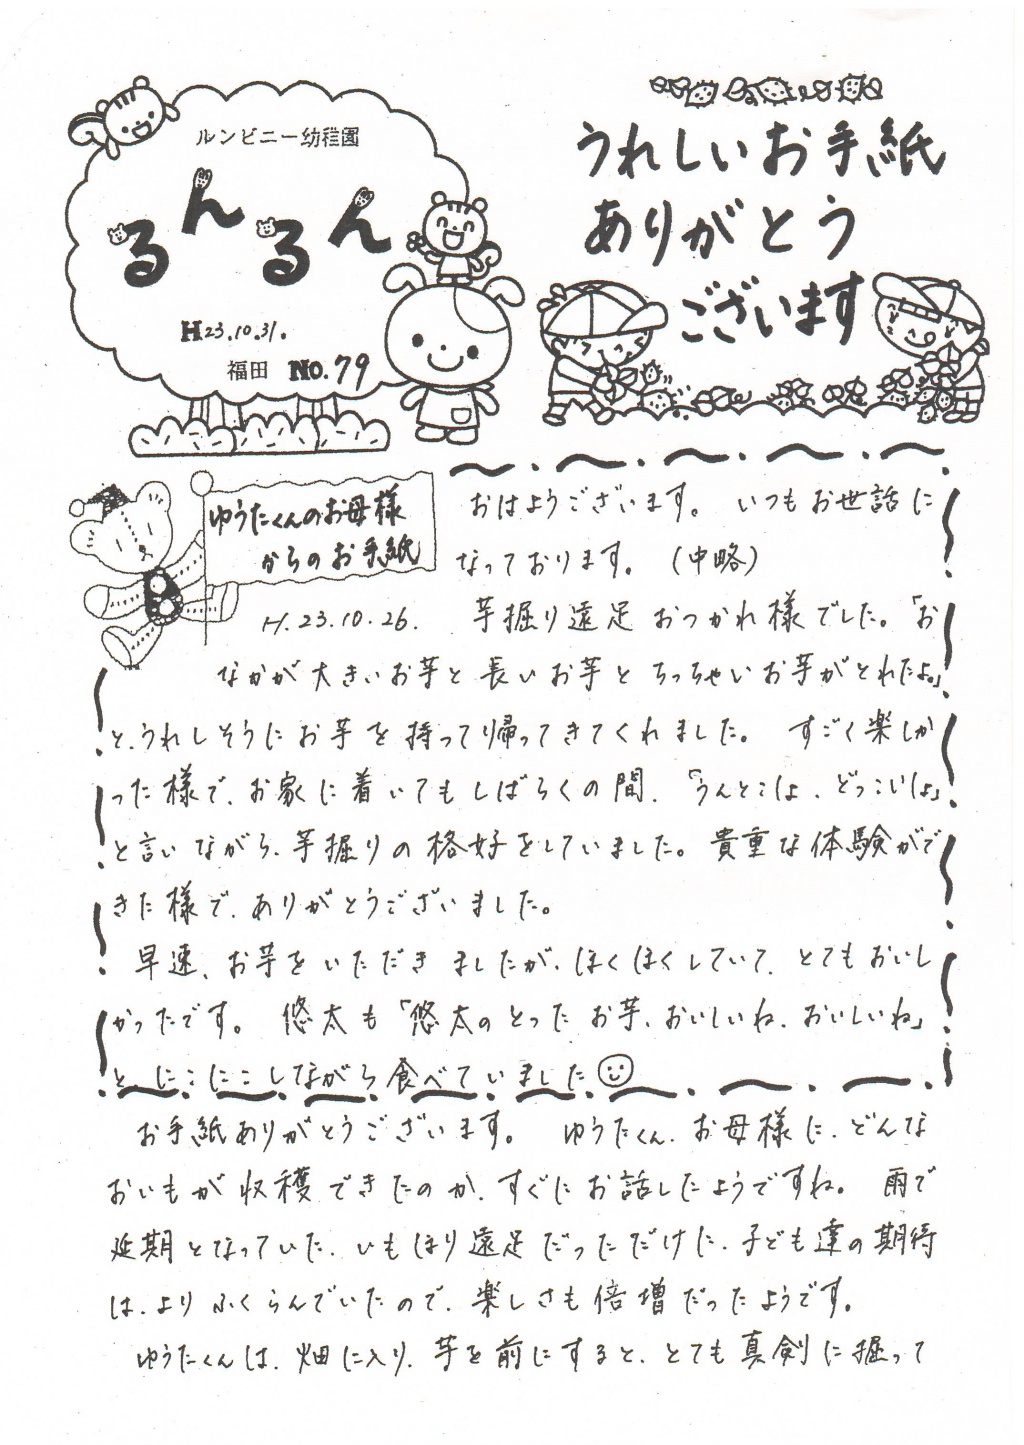 ルンビニー幼稚園
るんるん
H23.10.31.
福田 No.79
うれしいお手紙
ありがとう
ございます
ゆうたくんのお母様
からのお手紙
H.23.10.26.
おはようございます。 いつもお世話に
なっております。 (中略)
芋掘り遠足おつかれ様でした。「お
なかが大きいお芋と長いお芋とちっちゃいお芋がとれたよ。」
と、うれしそうにお芋を持って帰ってきてくれました。 すごく楽しか
った様で、お家に着いてもしばらくの間、「うんとこしょ、どっこいしょ」
と言いながら、芋掘りの格好をしていました。貴重な体験がで
きた様で、ありがとうございました。
早速、お芋をいただきましたが、ほくほくしていて、とてもおいし
かったです。 悠太も「悠太のとったお芋、おいしいね、おいしいね」
と、にこにこしながら食べていました
お手紙ありがとうございます。 ゆうたくん、お母様に、どんな
おいもが収穫できたのか、すぐにお話したようですね。 雨で
延期となっていた、いもほり遠足だっただけに、子ども達の期待
は、よりふくらんでいたので、楽しさも倍増だったようです。
ゆうたくんは、畑に入り、芋を前にすると、とても真剣に掘って